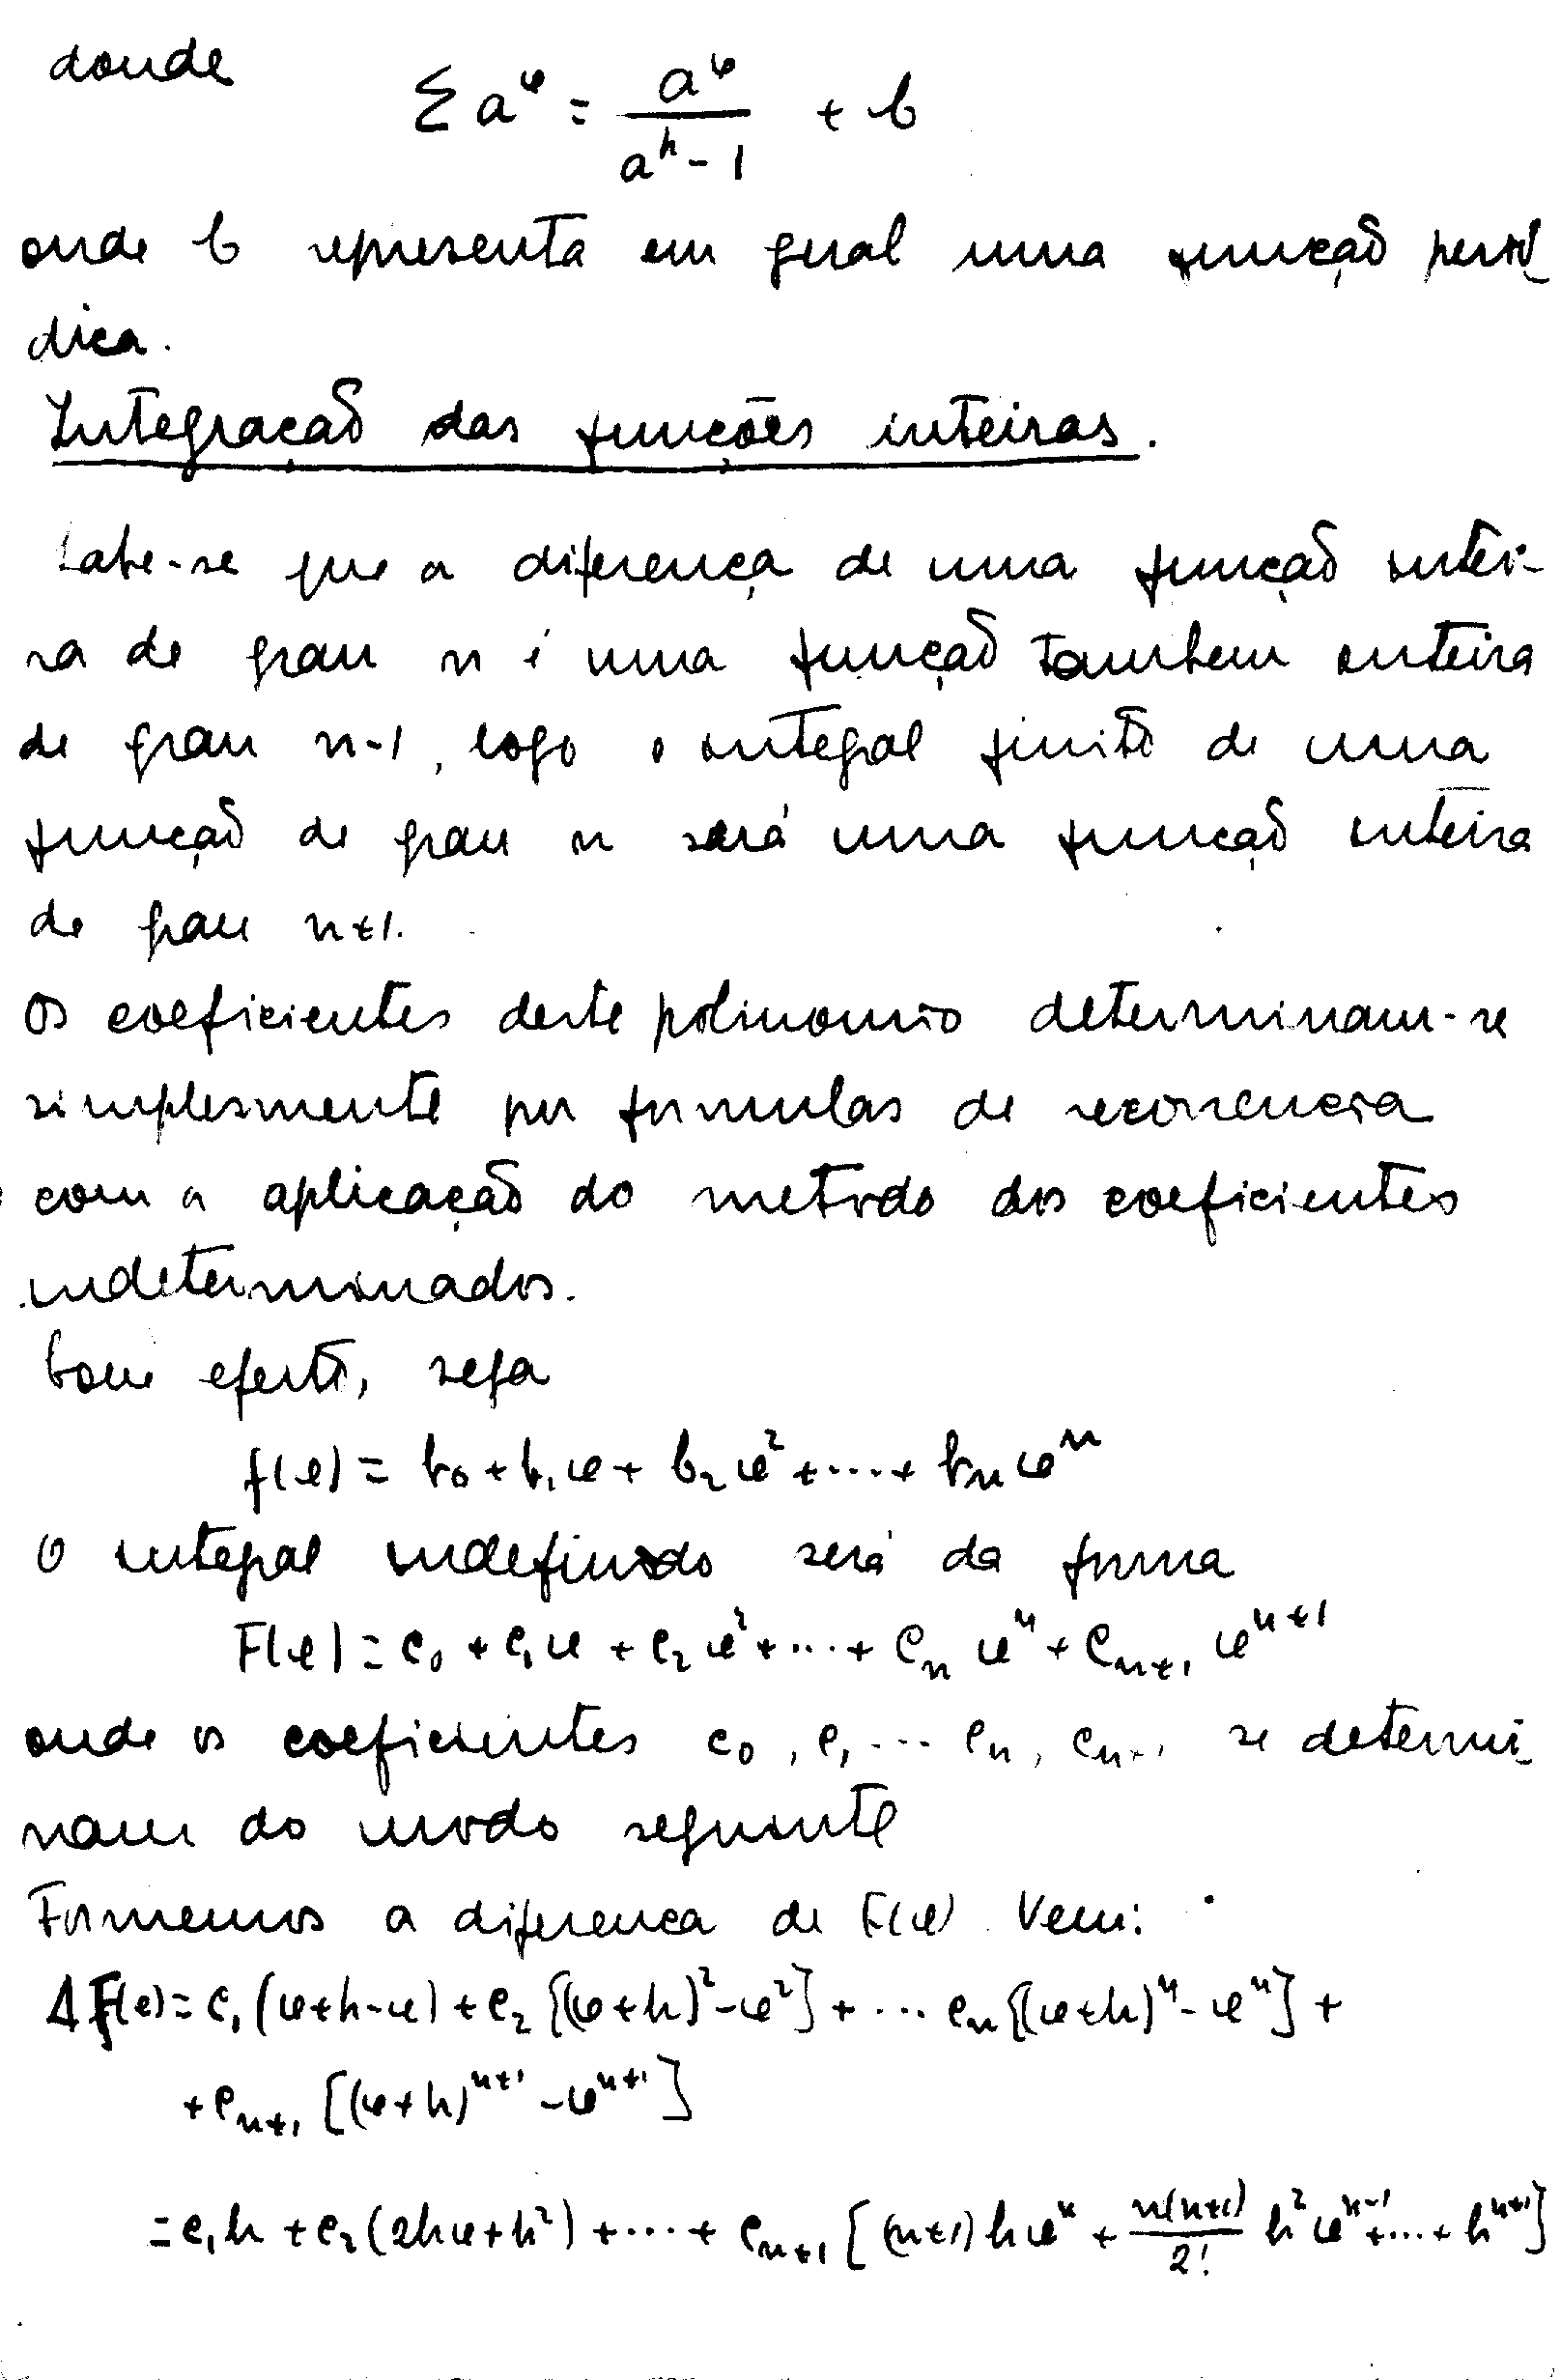 donde
Σ a^x = a^x / (a^h - 1) + C
onde C representa em geral uma função perió-
dica.
Integração das funções inteiras.
Sabe-se que a diferença de uma função intei-
ra de grau n é uma função tambem inteira
de grau n-1, logo o integral finito de uma
função de grau n será uma função inteira
de grau n+1.
Os coeficientes deste polinomio determinam-se
simplesmente por formulas de recorrencia
com a aplicação do metodo dos coeficientes
indeterminados.
Com efeito, seja
f(x) = b₀ + b₁x + b₂x² + .... + bₙxⁿ
O integral indefinido será da forma
F(x) = c₀ + c₁x + c₂x² + ... + cₙxⁿ + cₙ₊₁xⁿ⁺¹
onde os coeficientes c₀, c₁ ... cₙ, cₙ₊₁ se determi-
nam do modo seguinte
Formemos a diferença de F(x). Vem:
ΔF(x) = c₁(x+h-x) + c₂[(x+h)² - x²] + ... cₙ[(x+h)ⁿ - xⁿ] +
+ cₙ₊₁[(x+h)ⁿ⁺¹ - xⁿ⁺¹]
= c₁h + c₂(2hx + h²) + .... + cₙ₊₁[(n+1)hxⁿ + n(n+1)/2! h²xⁿ⁻¹ + ... + hⁿ⁺¹]